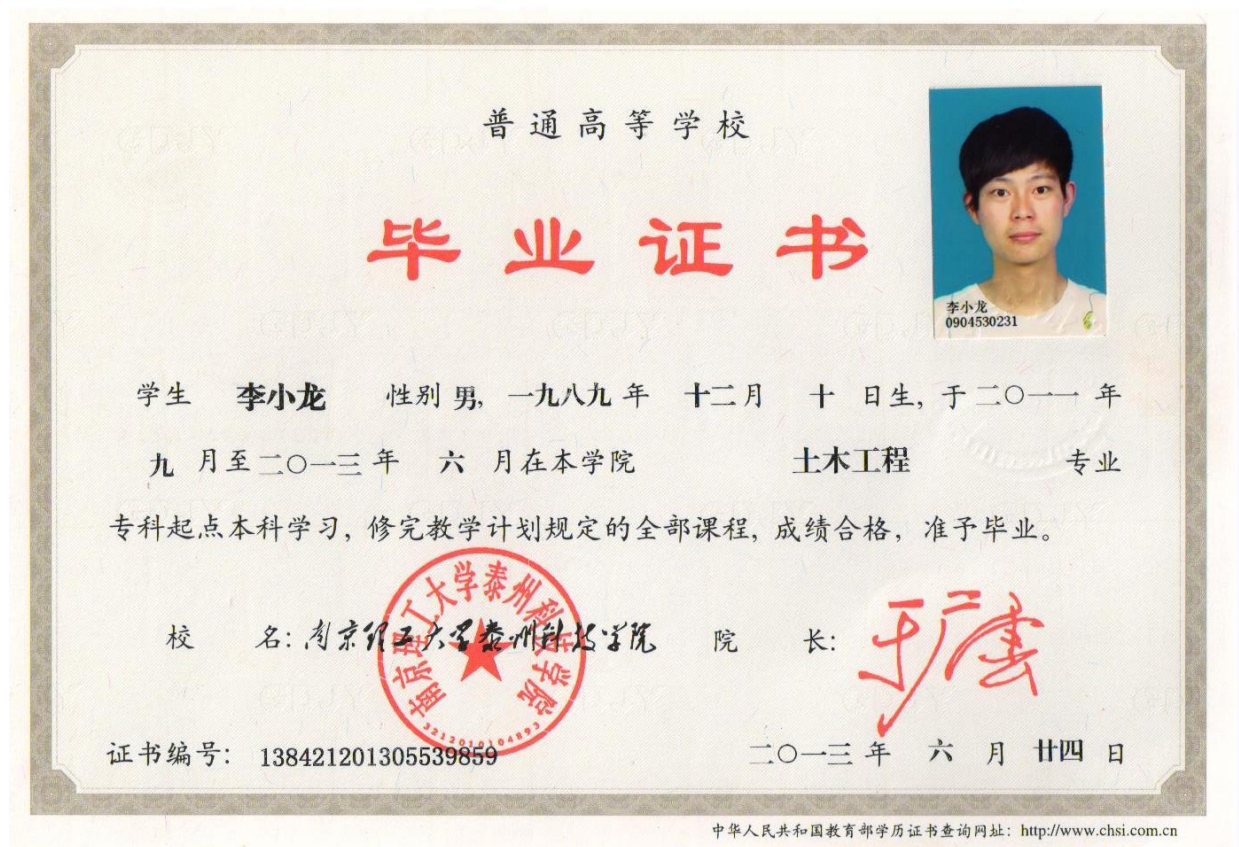 普通高等学校
毕业证书
李小龙
0904530231
学生 李小龙 性别 男, 一九八九 年 十二月 十 日生, 于 二〇一一 年
九 月至 二〇一三 年 六 月在本学院 土木工程 专业
专科起点本科学习, 修完教学计划规定的全部课程, 成绩合格, 准予毕业。
校 名: 南京理工大学泰州科技学院 院 长:
南京理工大学泰州科技学院
3212010104893
证书编号: 138421201305539859 二〇一三 年 六 月 廿四 日
中华人民共和国教育部学历证书查询网址: http://www.chsi.com.cn